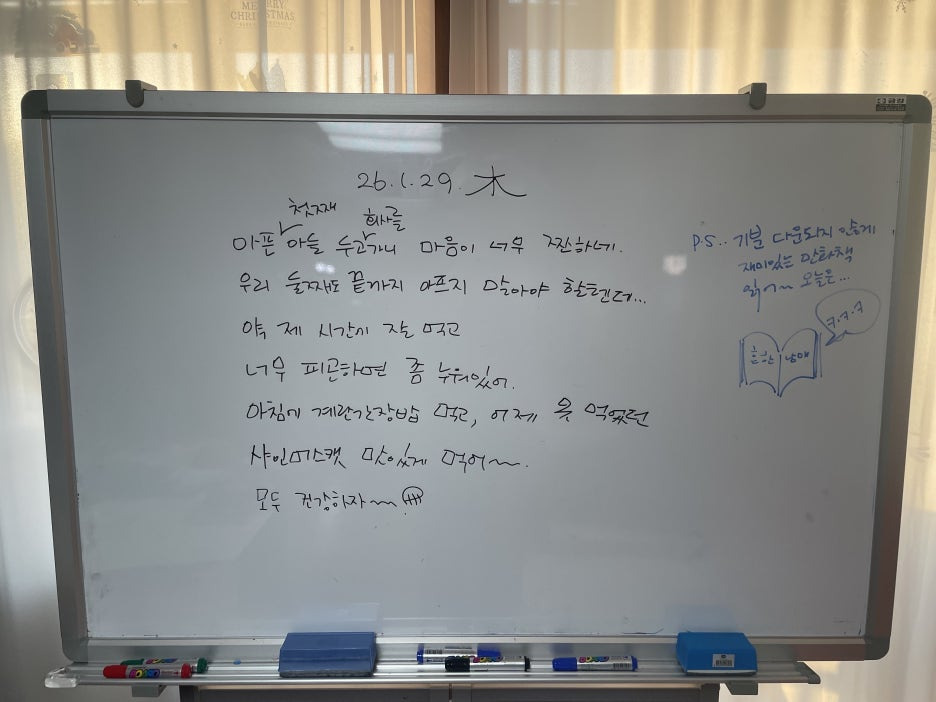 MERRY
CHRISTMAS
금장
26.1.29. 木
첫째 회사를
아픈 아들 두고가니 마음이 너무 짠하네.
우리 둘째도 끝까지 아프지 말아야 할텐데...
약 제 시간에 잘 먹고
너무 피곤하면 좀 누워있어.
아침에 계란간장밥 먹고, 어제 못 먹었던
샤인머스캣 맛있게 먹어~.
모두 건강하자~
P.S.. 기분 다운되지 않게
재미있는 만화책
읽어~ 오늘은...
ㅋ.ㅋ.ㅋ
흔한 남매